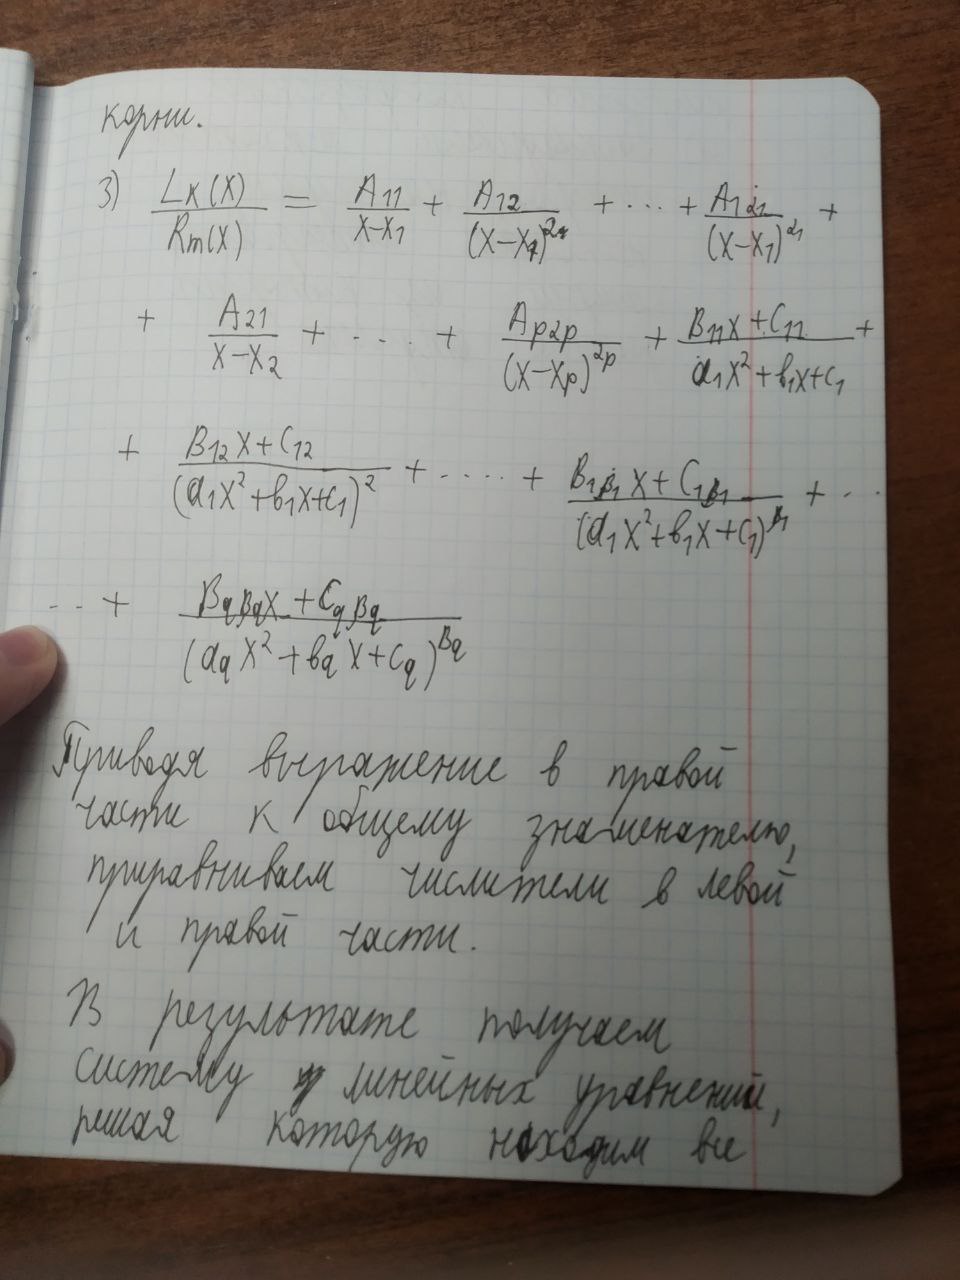 корни.
3) Lк(x)/Rm(x) = A11/(x-x1) + A12/(x-x1)^2 + ... + A1α1/(x-x1)^α1 +
+ A21/(x-x2) + ... + Apαp/(x-xp)^αp + (B11x+C11)/(a1x²+b1x+c1) +
+ (B12x+C12)/(a1x²+b1x+c1)² + .... + (B1β1x+C1β1)/(a1x²+b1x+c1)^β1 + ..
..+ (Bqβqx+Cqβq)/(aqx²+bqx+cq)^βq
Приводя выражение в правой
части к общему знаменателю,
приравниваем числители в левой
и правой части.
В результате получаем
систему линейных уравнений,
решая которую находим все